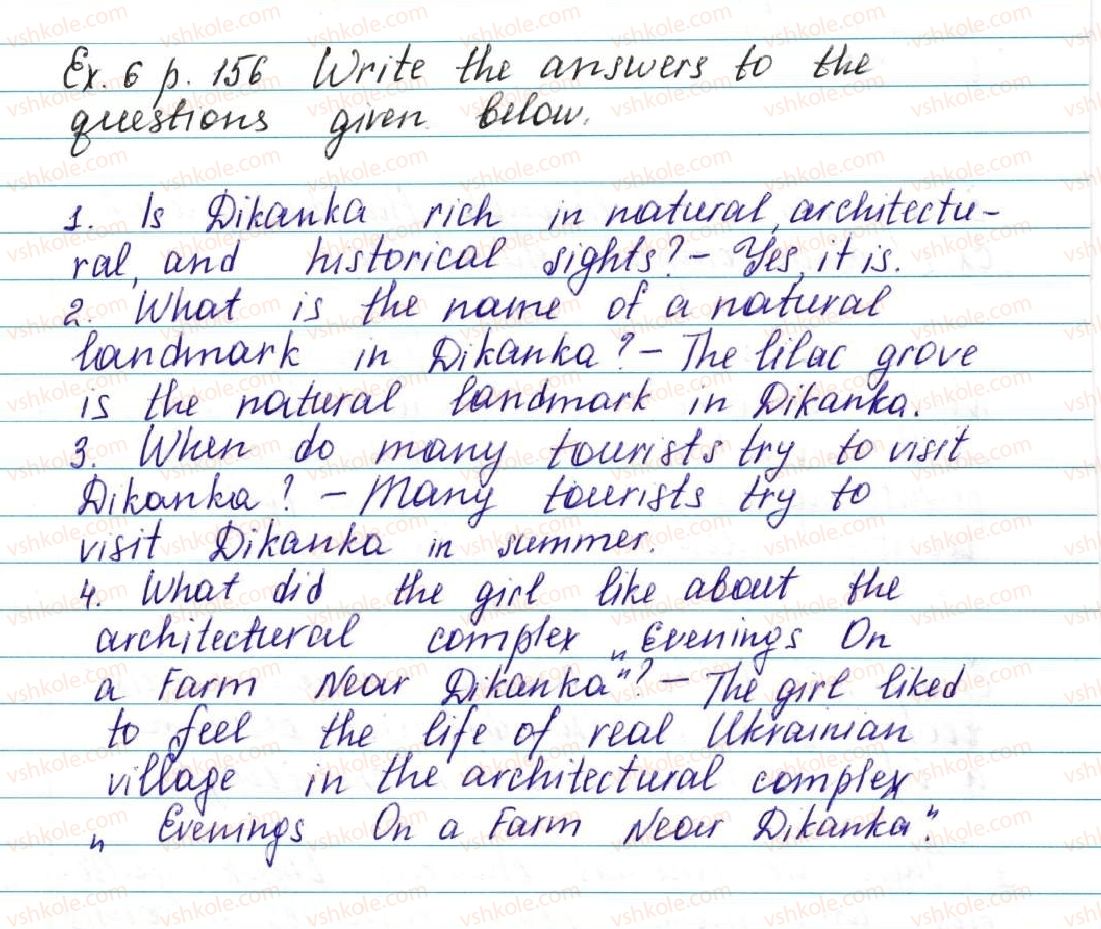 Ex. 6 p. 156 Write the answers to the
questions given below.
1. Is Dikanka rich in natural, architectu-
ral, and historical sights? – Yes, it is.
2. What is the name of a natural
landmark in Dikanka? – The lilac grove
is the natural landmark in Dikanka.
3. When do many tourists try to visit
Dikanka? – Many tourists try to
visit Dikanka in summer.
4. What did the girl like about the
architectural complex „Evenings On
a Farm Near Dikanka"? – The girl liked
to feel the life of real Ukrainian
village in the architectural complex
„Evenings On a Farm Near Dikanka".
vshkole.com